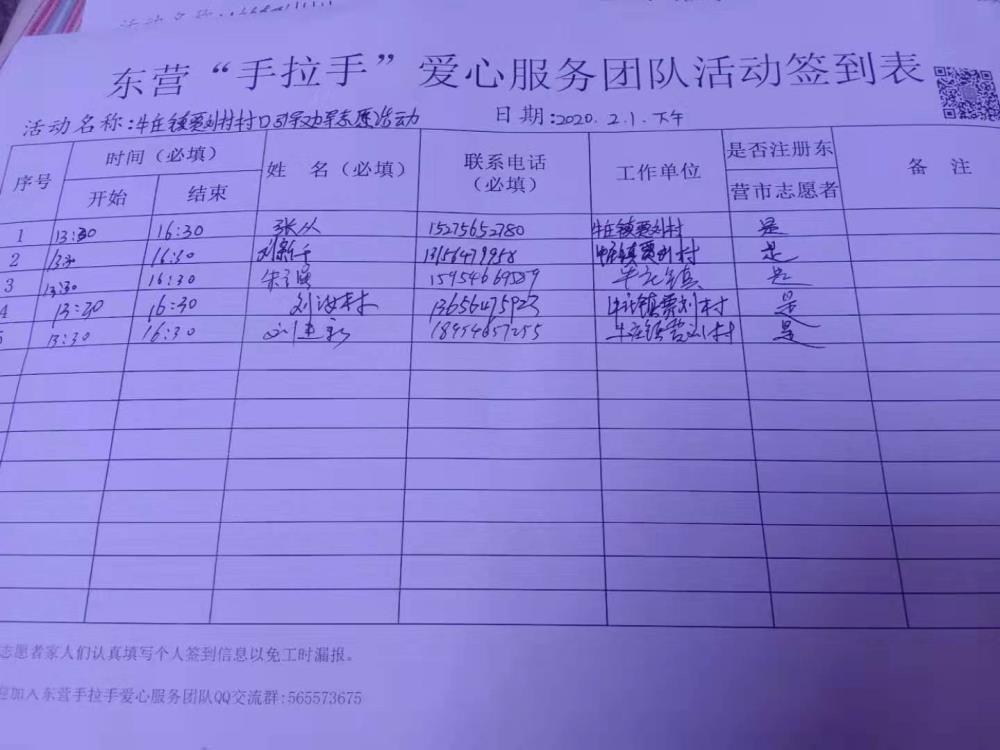 东营“手拉手”爱心服务团队活动签到表
活动名称:牛庄镇贾刘村村口 志愿活动 日期:2020.2.1.下午
序号 时间（必填） 姓 名（必填） 联系电话（必填） 工作单位 是否注册东营市志愿者 备 注
开始 结束
1 13:30 16:30 张从 15275652780 牛庄镇贾刘村 是
2 16:30 刘新千 13156479958 牛庄镇贾刘村 是
3 13:30 16:30 15954669589 牛庄镇 是
4 13:30 16:30 刘汝村 13656475923 牛庄镇贾刘村 是
13:30 16:30 18954657255 牛庄镇贾刘村 是
志愿者家人们认真填写个人签到信息以免工时漏报。
加入东营手拉手爱心服务团队QQ交流群:565573675